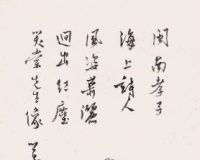 闽南孝子
海上诗人
风姿萧洒
迥出红尘
笑棠先生像